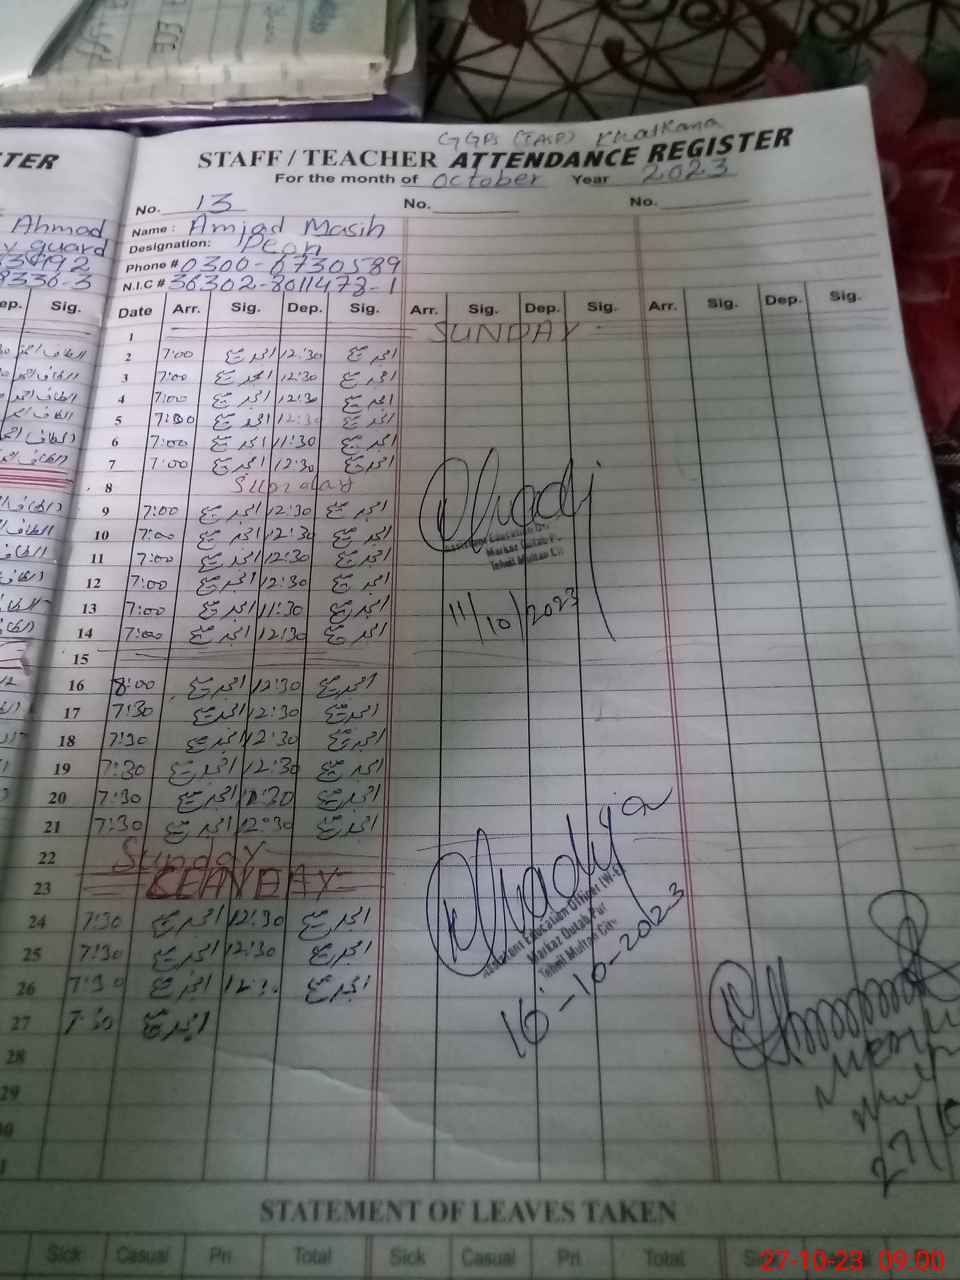 GGPS (EASP) Khalkana
STER STAFF / TEACHER ATTENDANCE REGISTER
For the month of October Year 2023
No. 13 No. No.
Ahmad Name : Amjad Masih
guard Designation: Peon
Phone # 0300-6730589
8330-3 N.I.C # 36302-8011478-1
ep. Sig. Date Arr. Sig. Dep. Sig. Arr. Sig. Dep. Sig. Arr. Sig. Dep. Sig.
1 SUNDAY
2 7:00 امجد مسیح 12:30 امجد مسیح
3 7:00 امجد مسیح 12:30 امجد مسیح
4 7:00 امجد مسیح 12:30 امجد مسیح
5 7:00 امجد مسیح 12:30 امجد مسیح
6 7:00 امجد مسیح 11:30 امجد مسیح
7 7:00 امجد مسیح 12:30 امجد مسیح
8 Sunday
9 7:00 امجد مسیح 12:30 امجد مسیح
10 7:00 امجد مسیح 12:30 امجد مسیح
11 7:00 امجد مسیح 12:30 امجد مسیح
12 7:00 امجد مسیح 12:30 امجد مسیح
13 7:00 امجد مسیح 11:30 امجد مسیح
14 7:00 امجد مسیح 12:30 امجد مسیح
15
16 8:00 امجد مسیح 12:30 امجد مسیح
17 7:30 امجد مسیح 12:30 امجد مسیح
18 7:30 امجد مسیح 12:30 امجد مسیح
19 7:30 امجد مسیح 12:30 امجد مسیح
20 7:30 امجد مسیح امجد مسیح
21 7:30 امجد مسیح 12:30 امجد مسیح
22 Sunday
23
24 7:30 امجد مسیح 12:30 امجد مسیح
25 7:30 امجد مسیح 12:30 امجد مسیح
26 7:30 امجد مسیح امجد مسیح
27 7:30 امجد مسیح
28
29
Assistant Education
Markaz Qutab
Tehsil Multan
11/10/2023
Assistant Education Officer (W-E)
Markaz Qutab Pur
Tehsil Multan City
16-10-2023
27/10
STATEMENT OF LEAVES TAKEN
Sick Casual Pri. Total Sick Casual Pri. Total
27-10-23 09:00